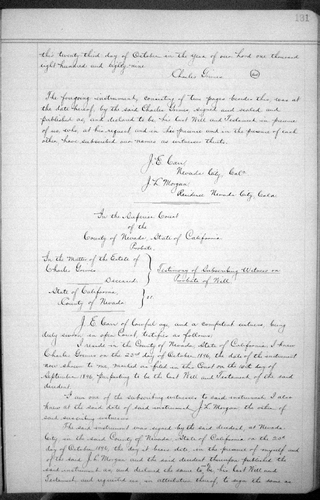 131
the twenty third day of October in the year of our Lord one thousand
eight hundred and eighty nine
Charles
The foregoing instrument, consisting of two pages besides this, was at
the date hereof, by the said Charles signed and sealed and
published as, and declared to be his last Will and Testament in presence
of us, who, at his request and in his presence and in the presence of each
other, have subscribed our names as witnesses thereto.
J. E. Carr
Nevada City, Cal
J. L. Morgan
Residence Nevada City, Cala.
In the Superior Court
of the
County of Nevada, State of California.
Probate.
In the Matter of the Estate of
Charles
Deceased.
Testimony of Subscribing Witness on
Probate of Will
State of California,
County of Nevada
ss
J. E. Carr of lawful age, and a competent witness, being
duly sworn in open Court testifies as follows:
I reside in the County of Nevada, State of California. I knew
Charles on the 23rd day of October, the date of the instrument
now shown to me, marked as filed in this Court on the day of
September purporting to be the last Will and Testament of the said
decedent.
I am one of the subscribing witnesses to said instrument. I also
knew at the said date of said instrument, J. L. Morgan the other
said subscribing witness.
The said instrument was signed by the said decedent, at Nevada
City in the said County of Nevada, State of California on the 23rd
day of October, the day it bears date in the presence of myself and
of the said J. L. Morgan and the said decedent thereupon published the
said instrument as, and declared the same to be, his last Will and
Testament and requested us, in attestation thereof, to sign the same as